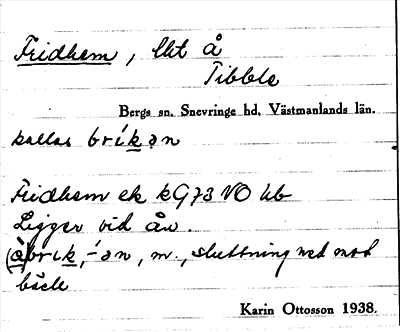 Fridhem, lht Å
Tibble
Bergs sn. Snevringe hd. Västmanlands län.
kallas bríkən
Fridhem ek kG73 VO Ub
Ligger vid ån.
(å)brik, -ən, m., sluttning ned mot
båck
Karin Ottosson 1938.